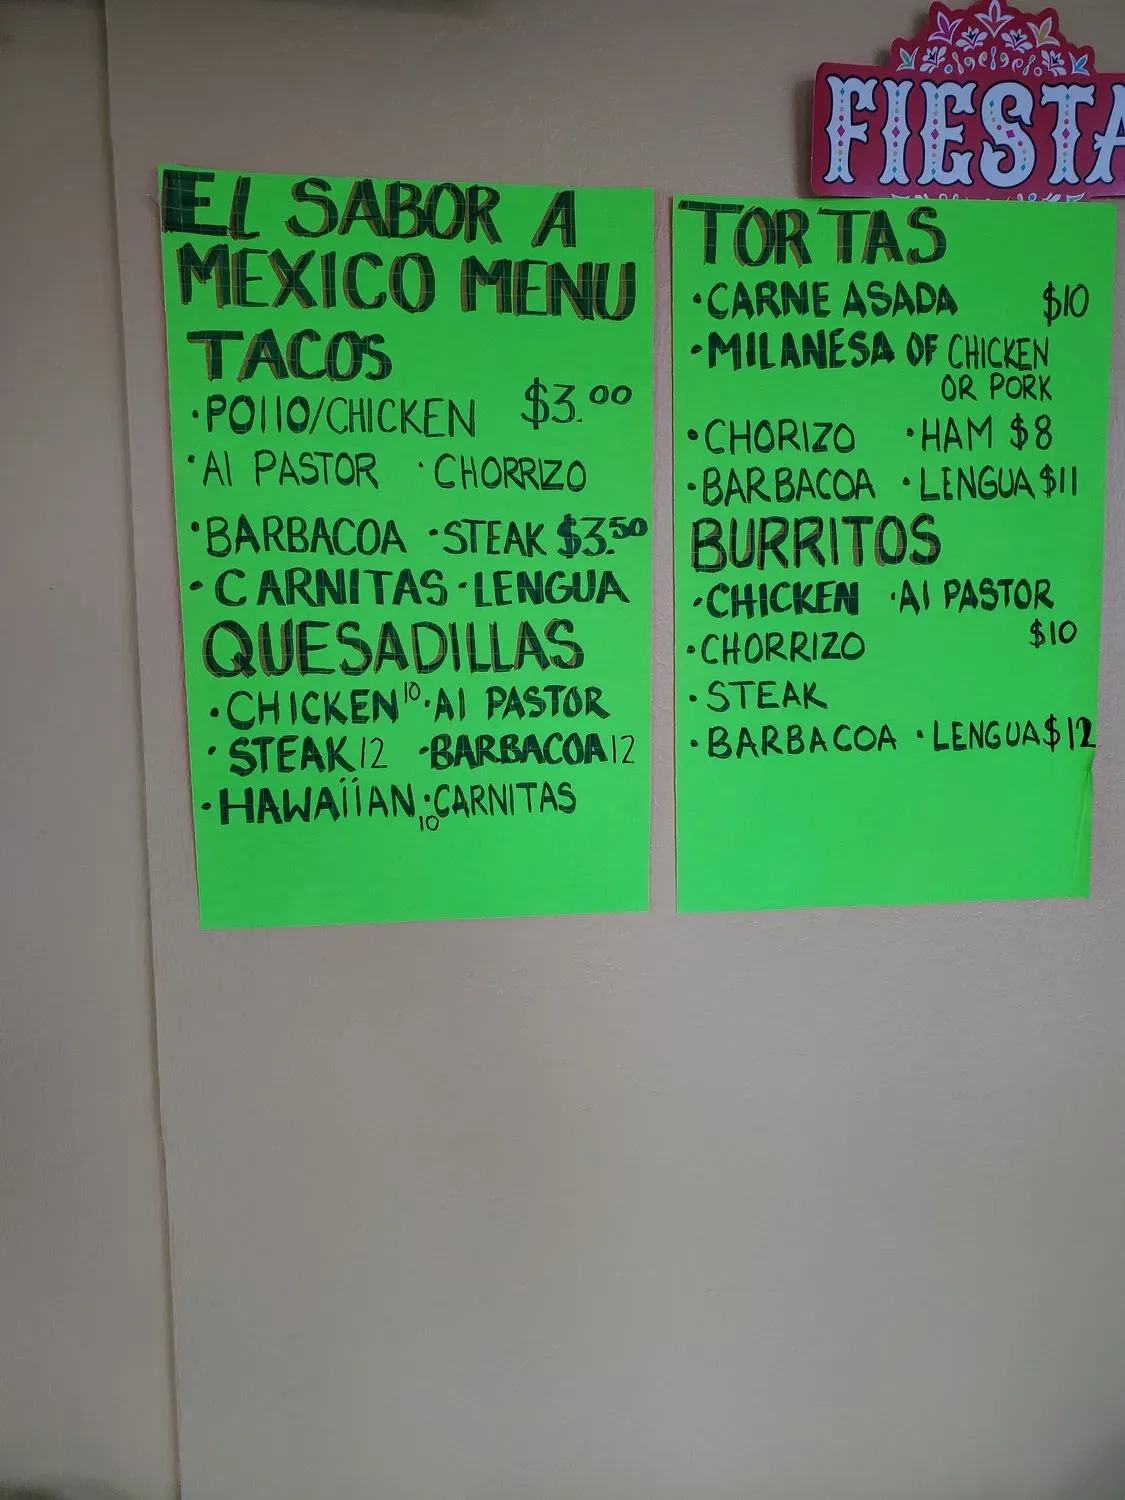 EL SABOR A
MEXICO MENU
TACOS
·POllO/CHICKEN $3.00
·Al PASTOR ·CHORRIZO
·BARBACOA ·STEAK $3.50
·CARNITAS ·LENGUA
QUESADILLAS
·CHICKEN 10 ·Al PASTOR
·STEAK 12 ·BARBACOA 12
·HAWAÍÍAN 10 ·CARNITAS
FIESTA
TORTAS
·CARNE ASADA $10
·MILANESA OF CHICKEN
OR PORK
·CHORIZO ·HAM $8
·BARBACOA ·LENGUA $11
BURRITOS
·CHICKEN ·Al PASTOR
$10
·CHORRIZO
·STEAK
·BARBACOA ·LENGUA $12